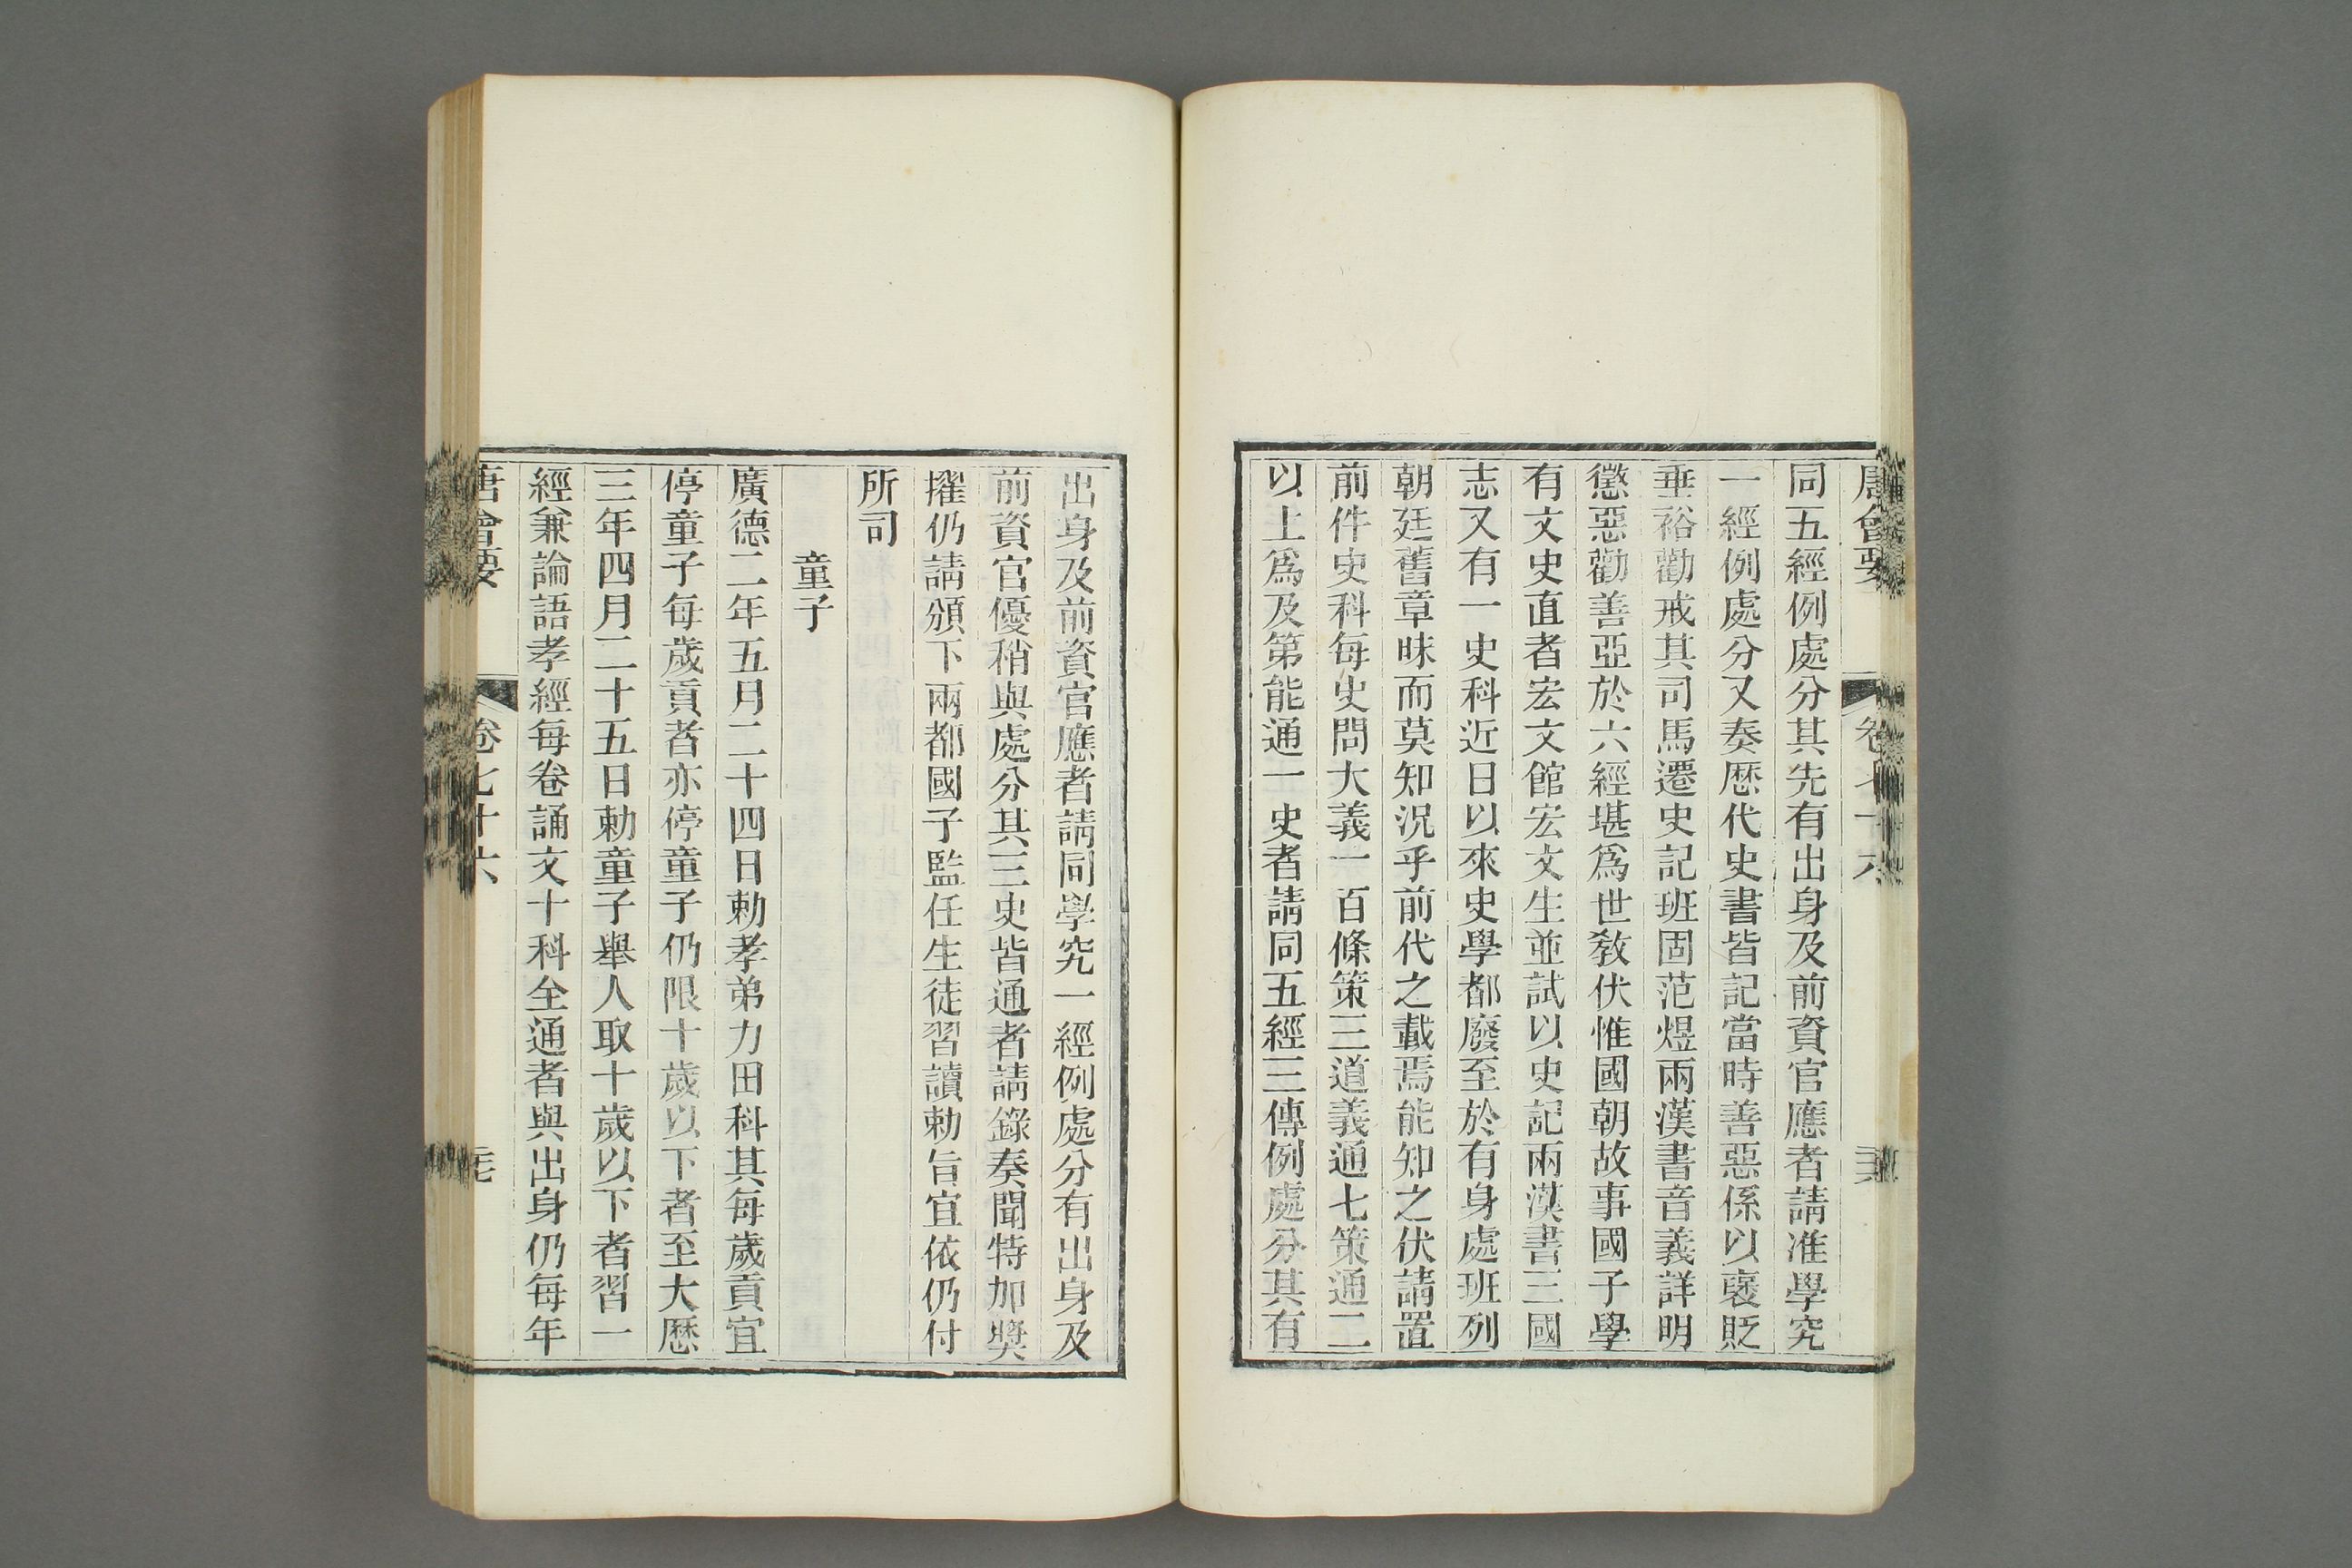 唐會要 卷七十六
同五經例處分其先有出身及前資官應者請准學究
一經例處分又奏歷代史書皆記當時善惡係以襃貶
垂裕勸戒其司馬遷史記班固范煜兩漢書音義詳明
懲惡勸善亞於六經堪爲世敎伏惟國朝故事國子學
有文史直者宏文館宏文生並試以史記兩漢書三國
志又有一史科近日以來史學都廢至於有身處班列
朝廷舊章昧而莫知況乎前代之載焉能知之伏請置
前件史科每史問大義一百條策三道義通七策通二
以上爲及第能通一史者請同五經三傳例處分其有
出身及前資官應者請同學究一經例處分有出身及
前資官優稍與處分其三史皆通者請錄奏聞特加獎
擢仍請頒下兩都國子監任生徒習讀勅旨宜依仍付
所司
童子
廣德二年五月二十四日勅孝弟力田科其每歲貢宜
停童子每歲貢者亦停童子仍限十歲以下者至大歷
三年四月二十五日勅童子舉人取十歲以下者習一
經兼論語孝經每卷誦文十科全通者與出身仍每年
唐會要 卷七十六